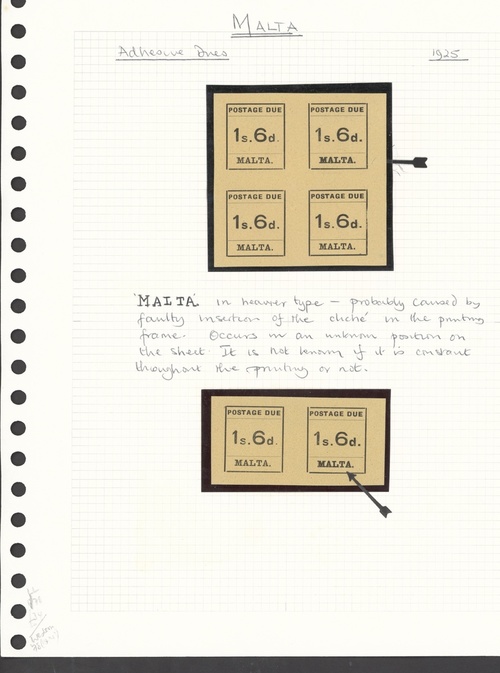 MALTA
Adhesive Dues 1925
POSTAGE DUE POSTAGE DUE
1s.6d. 1s.6d.
MALTA. MALTA.
POSTAGE DUE POSTAGE DUE
1s.6d. 1s.6d.
MALTA. MALTA.
'MALTA' in heavier type – probably caused by
faulty insertion of the cliché in the printing
frame. Occurs in an unknown position on
the sheet It is not known if it is constant
throughout the printing or not.
POSTAGE DUE POSTAGE DUE
1s.6d. 1s.6d.
MALTA. MALTA.